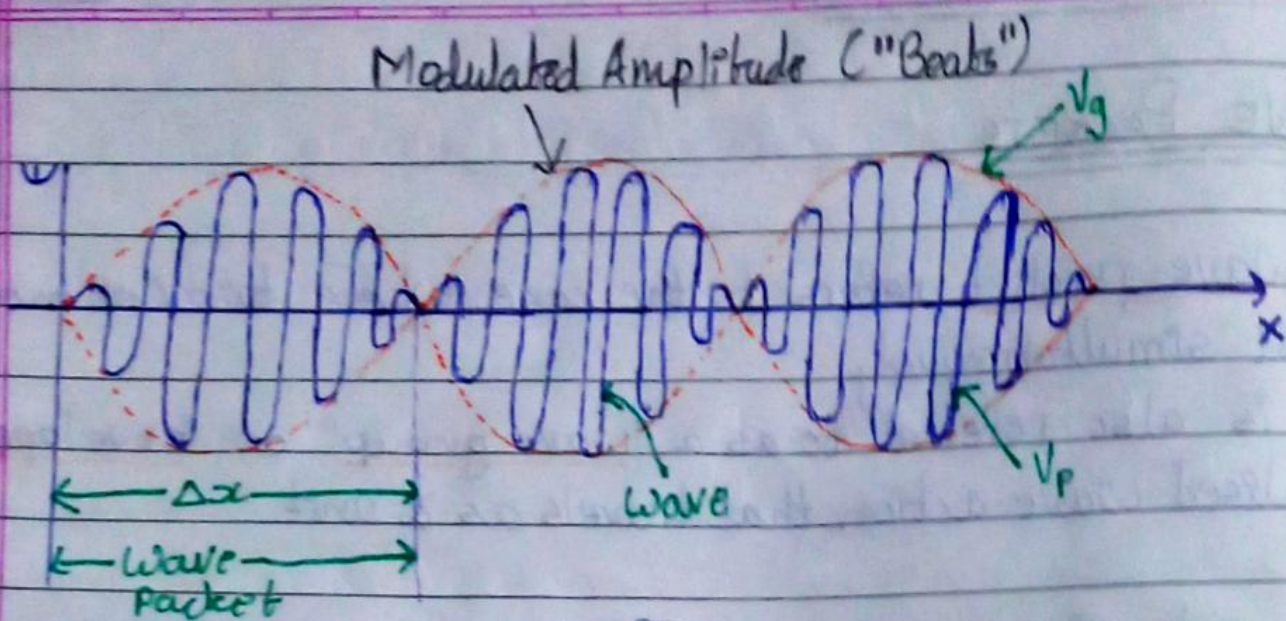 Modulated Amplitude ("Beats")
Vg
x
Δx
Wave
Vp
Wave
Packet